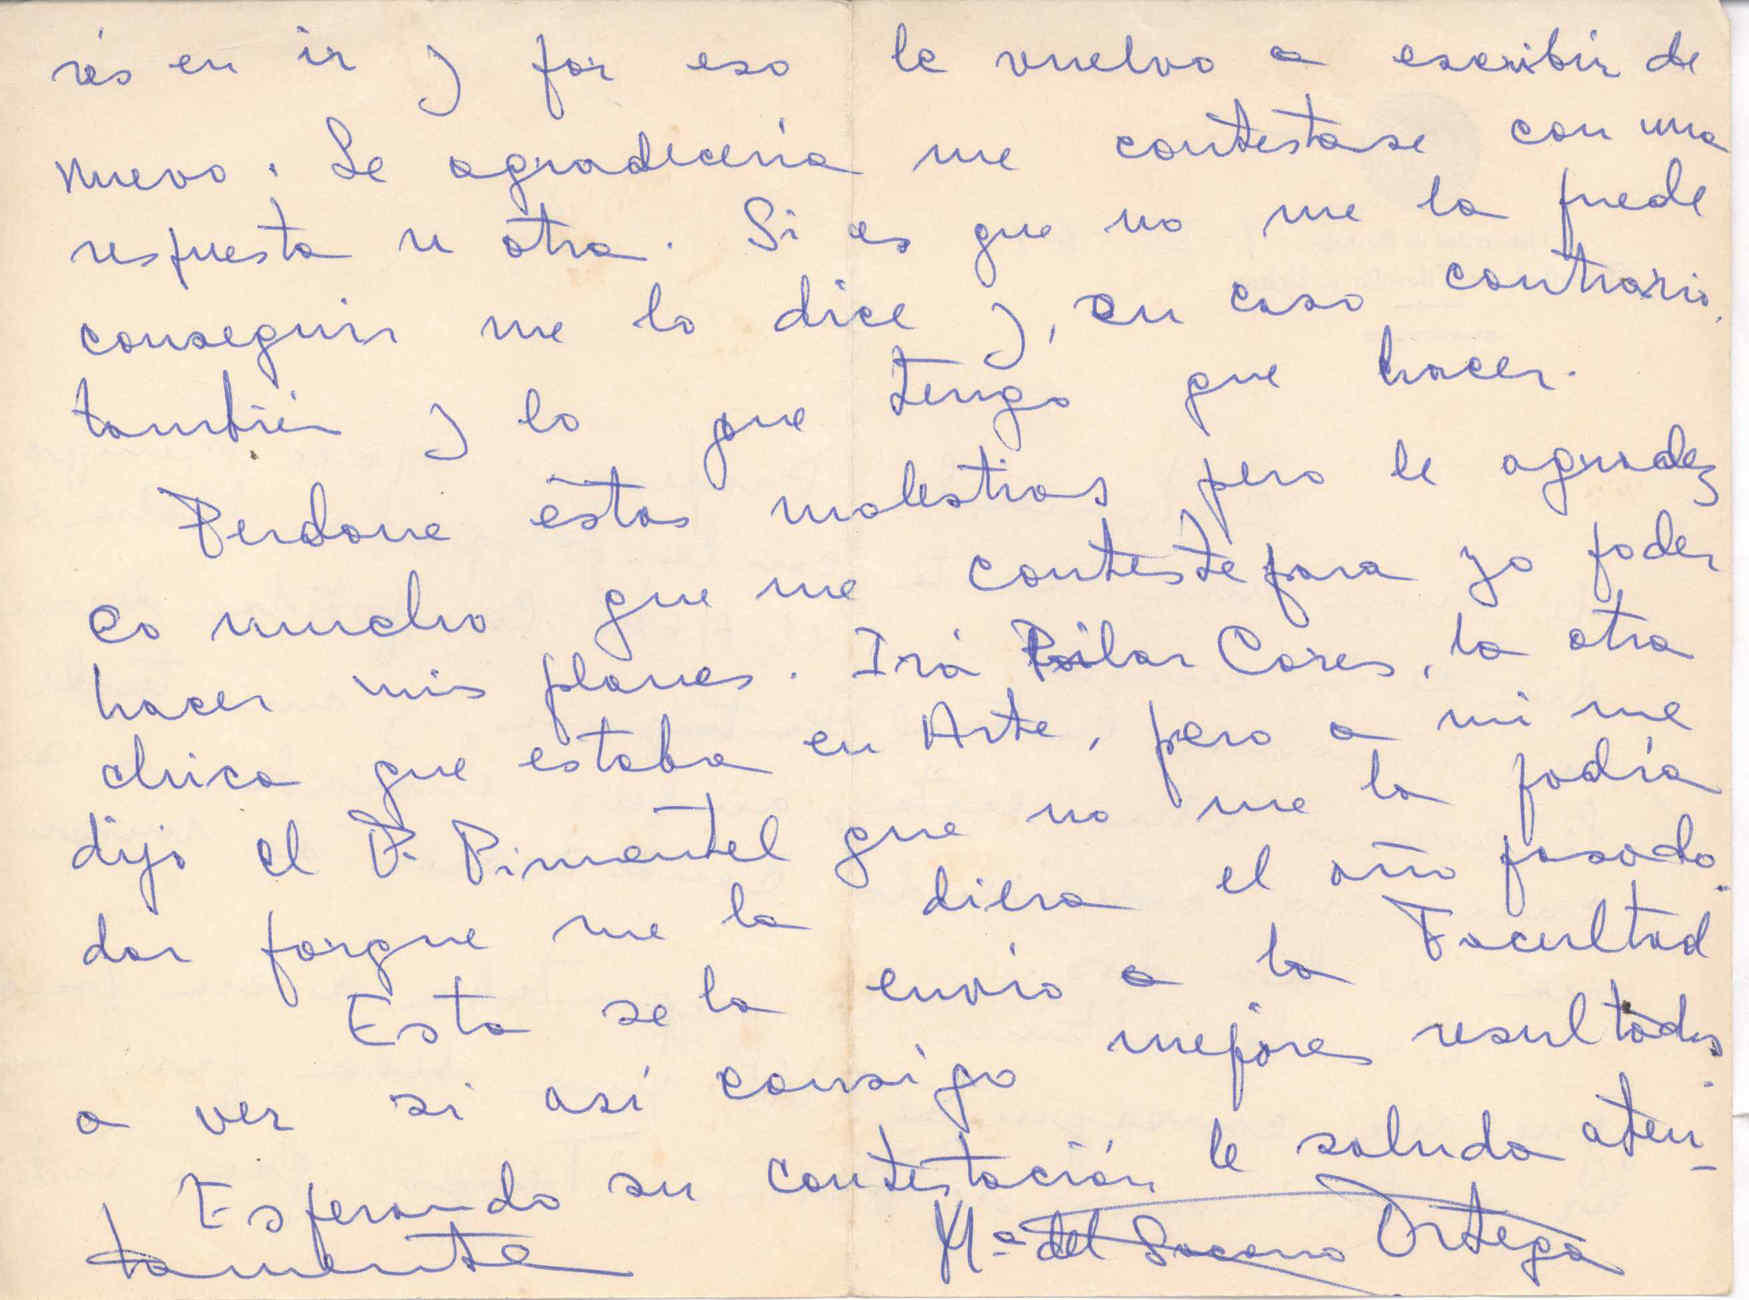 rés en ir y por eso le vuelvo a escribir de
nuevo. Le agradecería me contestase con una
respuesta u otra. Si es que no me la puede
conseguir me lo dice y, en caso contrario,
también y lo que tengo que hacer.
Perdone éstas molestias pero le agradez
co mucho que me conteste para yo poder
hacer mis planes. Irá Pilar Cores, la otra
chica que estaba en Arte, pero a mi me
dijo el P. Pimentel que no me la podía
dar porque me la diera el año pasado.
Esta se la envio a la Facultad
a ver si así consigo mejores resultados.
Esperando su contestación le saluda aten-
tamente
Mª del Socorro Ortega